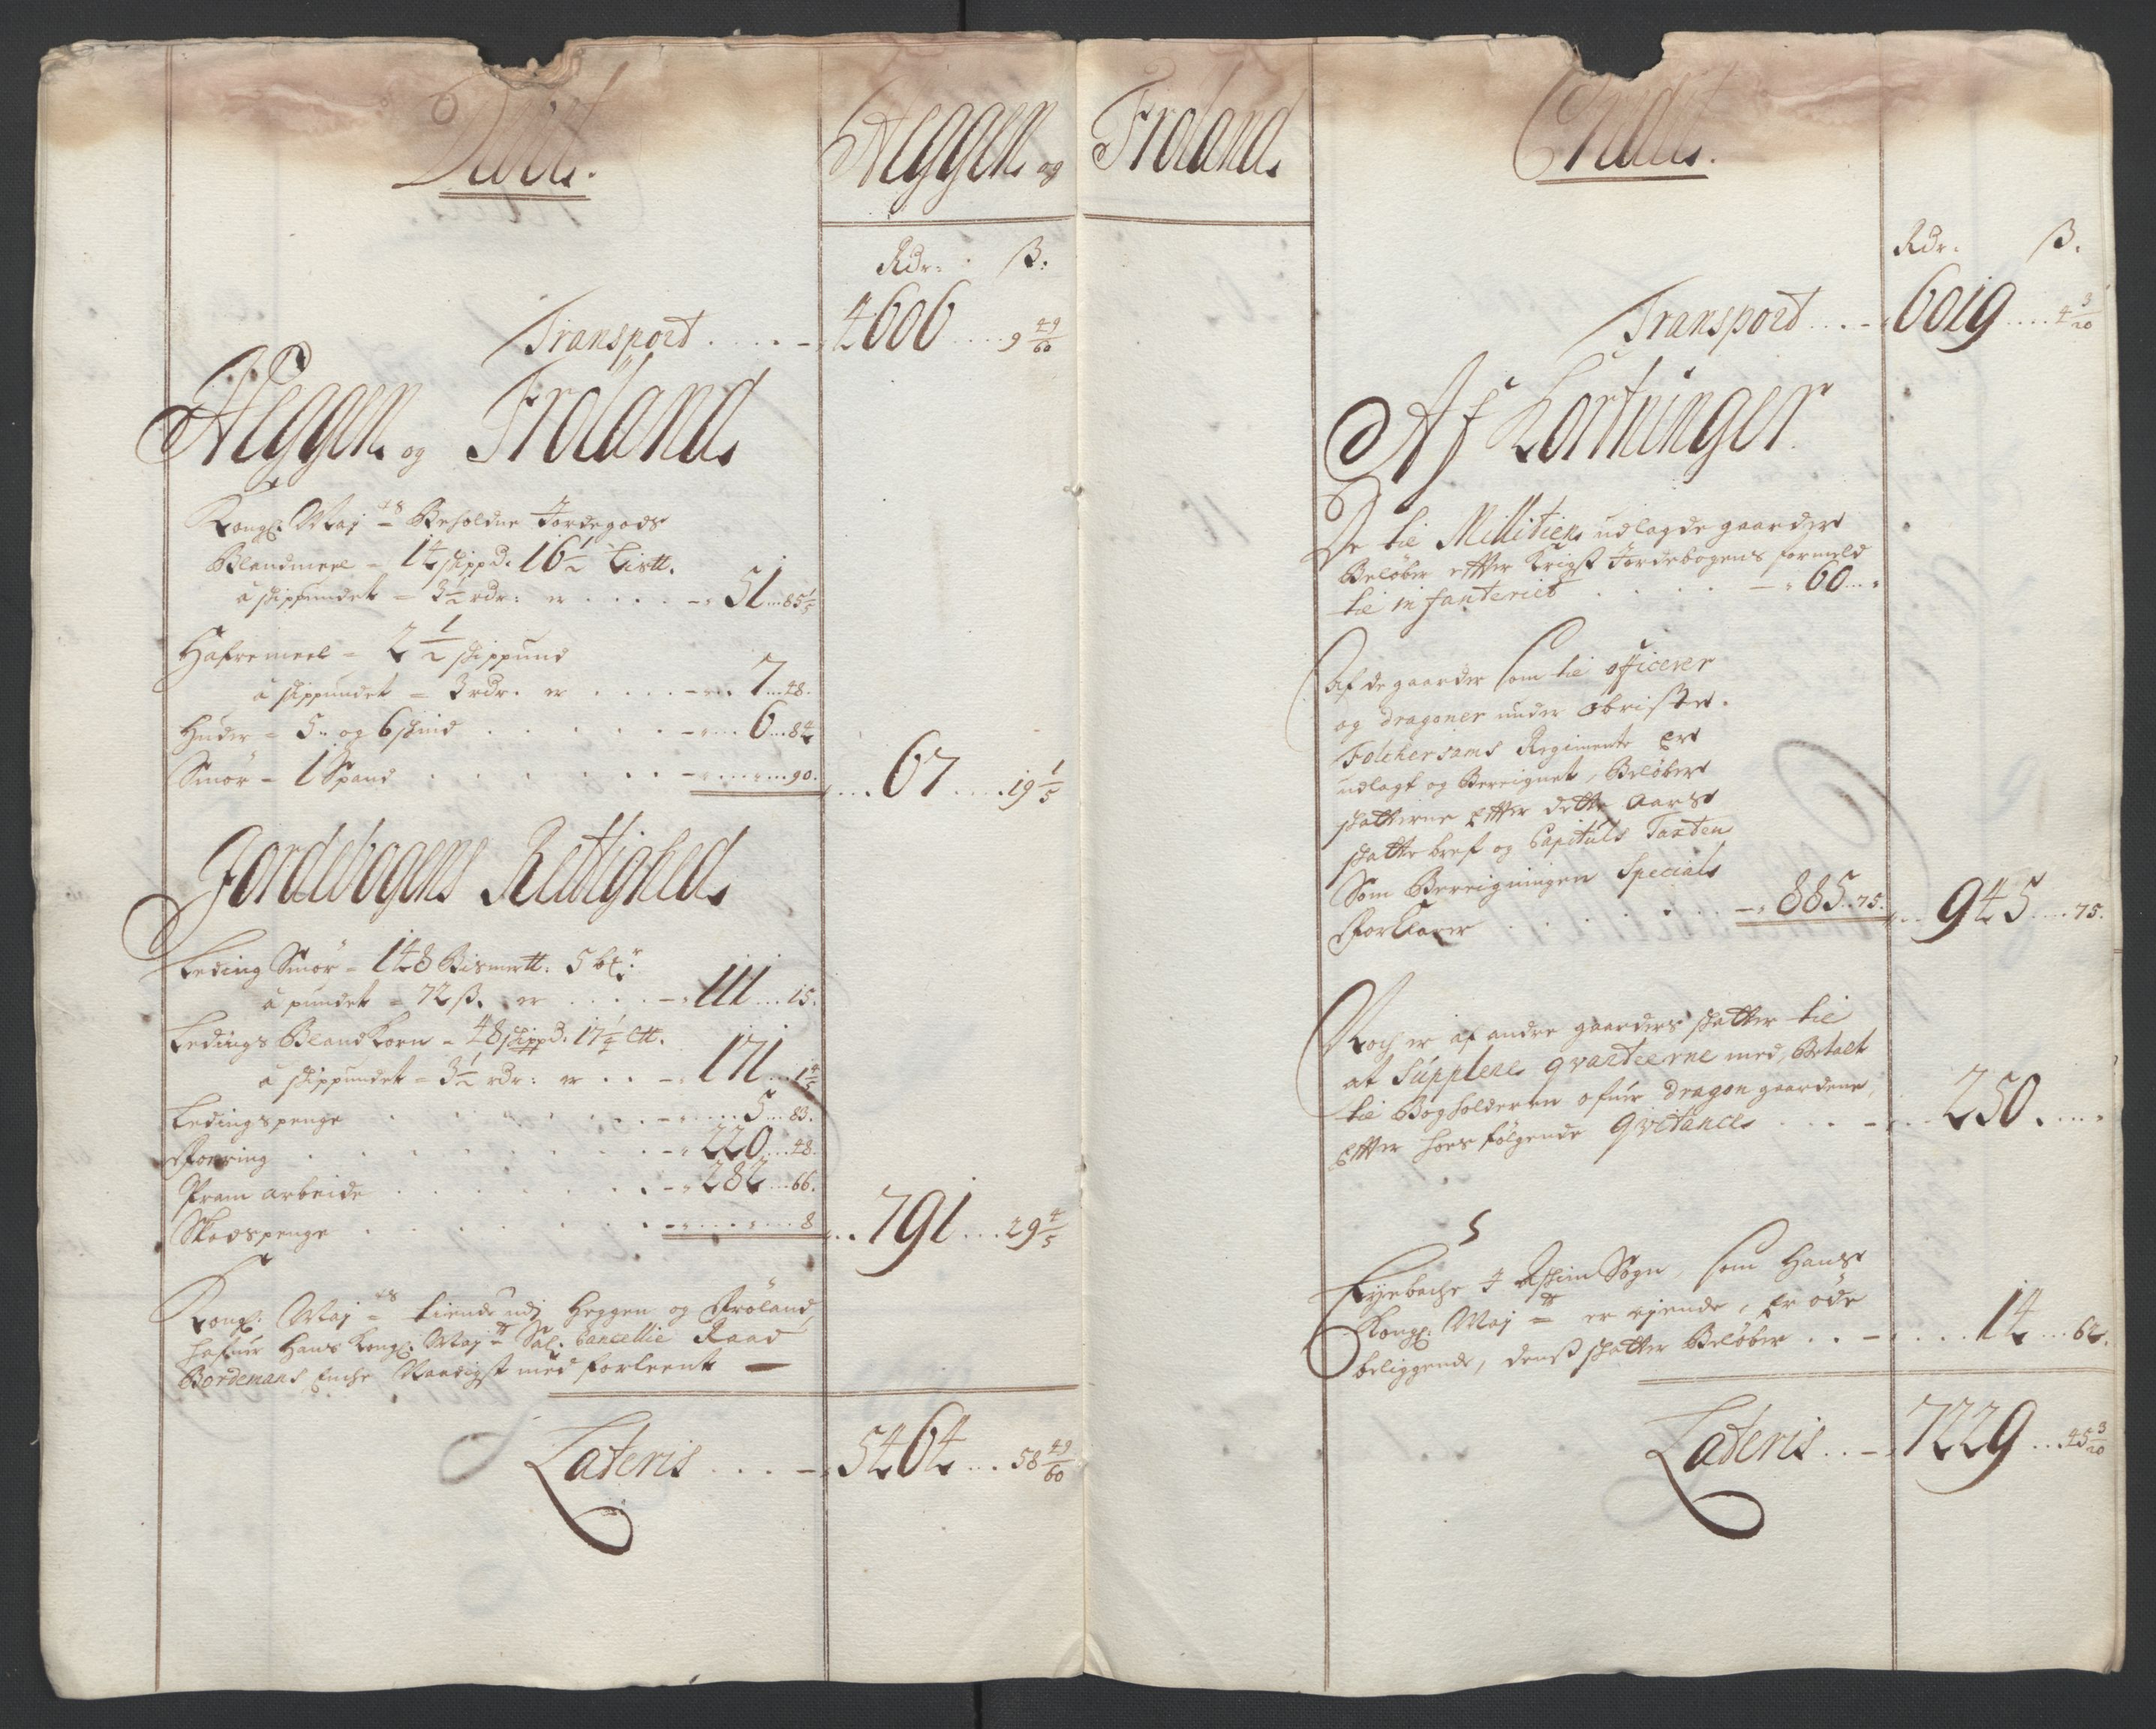 Debet.
Heggen og Frøland
Rdr. ß.
Transport 4606 9 49/60
Heggen og Frøland
Kongl. Maj ts Beholdne Jordegods
Blandmeel = 14 skippd. 16 1/2 Listt.
à skippundet = 3 1/2 rdr. er 51 85 1/5
Hafremeel = 2 1/2 skippund
à skippundet = 3 rdr. er 7 48
Huder = 5 og 6 skind 6 84
Smør = 1 Spand 90 67 19 1/5
Jordebogens Rettighed
Leding Smør = 148 Bismertt. 5
à pundet = 72 ß. er 111 15
Ledings Blandkorn = 48 skippd. 17 1/2 Ltt.
à skippundet = 3 1/2 rdr. er 171 1 4/5
Ledingspenge 5 83
Foering 220 48
Pram arbeide 282 66
Skadspenge 8 791 29 4/5
Kongl. Maj ts tiende udj Heggen og Frøland,
hafuer Hans Kongl. Maj tt Sal. Cancellie Raad
Bordemans Enche Naadigst med forleent
Lateris 5464 58 49/60
Credit.
Rdr. ß.
Transport 6019 4 3/20
Af Kortninger
De til Militien udlagde gaarder
Beløber effter Krigs Jordebogens formeld
til infanteriet 60
Af de gaarder som til officerer
og dragoner under Obrister
Folchersams Regimente er
udlagt og Bereignet, Beløber
skatterne Effter dette Aars
skatte bref og Capituls Taxten
Som Bereigningen Specials
Forklarer 885 75 945 75
Noch er af andre gaarders skatter til
at Supplene qvarteerne med, Betalt
til Bogholderen ofuer dragon gaardene,
Effter hoes følgende Qvitance 250
5
Fyebache I Eschim Sogn, som Hans
Kongl. Maj tt er ejende, Er øde
beliggende, denß skatter Beløber 14 62
Lateris 7229 45 3/20